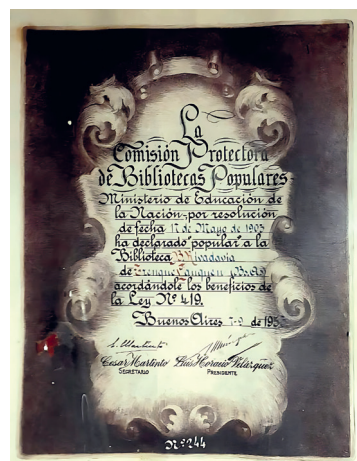 La
Comisión Protectora
de Bibliotecas Populares
Ministerio de Educación de
la Nación, por resolución
de fecha 17 de Mayo de 1905
ha declarado "popular" a la
Biblioteca B. Rivadavia
de Trenque Lauquen (Bs.As)
acordándole los beneficios de
la Ley Nº 419.
Buenos Aires 7-9 de 195
Cesar Martinto Luis Horacio Velázquez
SECRETARIO PRESIDENTE
Nº 244